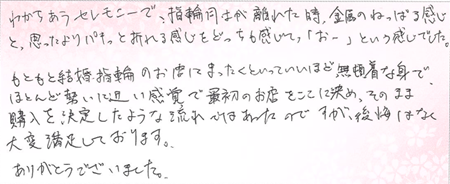 わかちあうセレモニーで、指輪同士が離れた時、金属のねっばる感じ
と、思ったよりパキっと折れる感じをどっちも感じて、「おー」という感じでした。
もともと結婚指輪のお店にまったくといっていいほど無頓着な身で、
ほとんど勢いに近い感覚で最初のお店をここに決め、そのまま
購入を決定したような流れではあったのですが、後悔はなく
大変満足しております。
ありがとうございました。